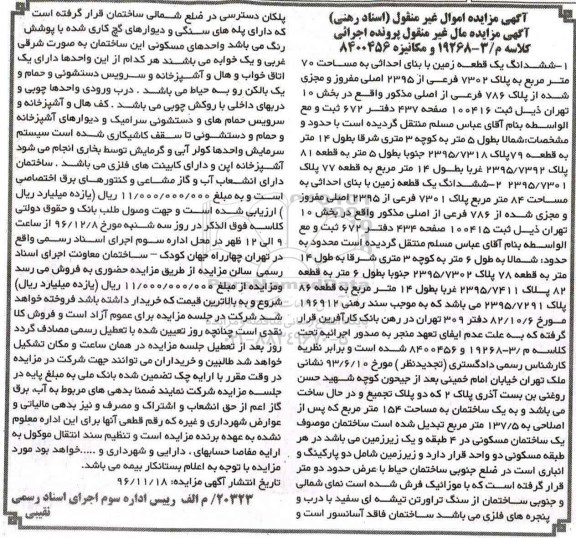 آگهی مزایده اموال غیر منقول (اسناد رهنی)
آگهی مزایده مال غیر منقول پرونده اجرائی
کلاسه م/۳-۱۹۲۶۸ و مکانیزه ۸۴۰۰۴۵۶
۱-ششدانگ یک قطعه زمین با بنای احداثی به مساحت ۷۰
متر مربع به پلاک ۷۳۰۲ فرعی از ۲۳۹۵ اصلی مفروز و مجزی
شده از پلاک ۷۸۶ فرعی از اصلی مذکور واقع در بخش ۱۰
تهران ذیل ثبت ۱۰۰۴۱۶ صفحه ۴۳۷ دفتر ۶۷۲ ثبت و مع
الواسطه بنام آقای عباس مسلم منتقل گردیده است با حدود و
مشخصات:شمالا بطول ۵ متر به کوچه ۳ متری شرقا بطول ۱۴ متر
به قطعه ۷۹ پلاک ۲۳۹۵/۷۳۱۸ جنوبا بطول ۵ متر به قطعه ۸۱
پلاک ۲۳۹۵/۷۳۹۲ غربا بطول ۱۴ متر به قطعه ۷۷ پلاک
۲۳۹۵/۷۳۰۱ ۲-ششدانگ یک قطعه زمین با بنای احداثی به
مساحت ۸۴ متر مربع پلاک ۷۳۰۱ فرعی از ۲۳۹۵ اصلی مفروز
و مجزی شده از ۷۸۶ فرعی از اصلی مذکور واقع در بخش ۱۰
تهران ذیل ثبت ۱۰۰۴۱۵ صفحه ۴۳۴ دفتر ۶۷۲ ثبت و مع
الواسطه بنام آقای عباس مسلم منتقل گردیده است محدود به
حدود: شمالا به طول ۶ متر به کوچه ۳ متری شرقا به طول ۱۴
متر به قطعه ۷۸ پلاک ۲۳۹۵/۷۳۰۲ جنوبا بطول ۶ متر به قطعه
۸۲ پلاک ۲۳۹۵/۷۴۱۱ غربا بطول ۱۴ متر مربع به قطعه ۸۶
پلاک ۲۳۹۵/۷۲۹۱ می باشد که به موجب سند رهنی ۱۹۶۹۱۲
مورخ ۸۲/۱۰/۶ دفتر ۳۰۹ تهران در رهن بانک کارآفرین قرار
گرفته که به علت عدم ایفای تعهد منجر به صدور اجرائیه تحت
کلاسه م /۳-۱۹۲۶۸ و ۸۴۰۰۴۵۶ شده است و برابر نظریه
کارشناس رسمی دادگستری (تجدیدنظر ) مورخ ۹۳/۶/۱۰ نشانی
ملک تهران خیابان امام خمینی بعد از جیحون کوچه شهید حسن
روغنی بن بست آذری پلاک ۲ که دو پلاک تجمیع و در حال ساخت
می باشد و به یک ساختمان به مساحت ۱۵۴ متر مربع که پس از
اصلاحی به ۱۳۷/۵ متر مربع تبدیل شده است ساختمان موصوف
یک ساختمان مسکونی در ۴ طبقه و یک زیرزمین می باشد در هر
طبقه مسکونی دو واحد قرار دارد و زیرزمین شامل دو پارکینگ و
انباری است در ضلع جنوبی ساختمان حیاط با عرض حدود دو متر
قرار گرفته است که با موزائیک فرش شده است نمای شمالی
و جنوبی ساختمان از سنگ تراورتن تیشه ای سفید با درب و
پنجره های فلزی می باشد ساختمان فاقد آسانسور است و
پلکان دسترسی در ضلع شمالی ساختمان قرار گرفته است
که دارای پله های سنگی و دیوارهای گچ کاری شده با پوشش
رنگ می باشد واحدهای مسکونی این ساختمان به صورت شرقی
غربی و یک خوابه می باشند هر کدام از این واحدها دارای یک
اتاق خواب و هال و آشپزخانه و سرویس دستشوئی و حمام و
یک بالکن رو به حیاط می باشد . درب ورودی واحدها چوبی و
دربهای داخلی با روکش چوبی می باشد . کف هال و آشپزخانه و
سرویس حمام های و دستشوئی سرامیک و دیوارهای آشپزخانه
و حمام و دستشوئی تا سقف کاشیکاری شده است سیستم
سرمایش واحدها کولر آبی و گرمایش توسط بخاری انجام می شود
آشپزخانه اپن و دارای کابینت های فلزی می باشد . ساختمان
دارای انشعاب آب و گاز مشاعی و کنتورهای برق اختصاصی
است و به مبلغ ۱۱/۰۰۰/۰۰۰/۰۰۰ ریال (یازده میلیارد ریال
) ارزیابی شده است و جهت وصول طلب بانک و حقوق دولتی
کلاسه فوق الذکر در روز سه شنبه مورخ ۹۶/۱۲/۸ از ساعت
۹ الی ۱۲ ظهر در محل اداره سوم اجرای اسناد رسمی واقع
در تهران چهارراه جهان کودک – ساختمان معاونت اجرای اسناد
رسمی سالن مزایده از طریق مزایده حضوری به فروش می رسد
ومزایده از مبلغ ۱۱/۰۰۰/۰۰۰/۰۰۰ ریال (یازده میلیارد ریال)
شروع و به بالاترین قیمت که خریدار داشته باشد فروخته خواهد
شد شرکت در جلسه مزایده برای عموم آزاد است و فروش کلا
نقدی است چنانچه روز تعیین شده با تعطیل رسمی مصادف گردد
روز بعد از تعطیل جلسه مزایده در همان ساعت و مکان تشکیل
خواهد شد طالبین و خریداران می توانند جهت شرکت در مزایده
در وقت مقرر با ارایه چک تضمین شده بانک ملی به مبلغ پایه در
جلسه مزایده شرکت نمایند ضمنا بدهی های مربوط به آب، برق
گاز اعم از حق انشعاب و اشتراک و مصرف و نیز بدهی مالیاتی و
عوارض شهرداری و غیره که رقم قطعی آنها برای این اداره معلوم
نشده به عهده برنده مزایده است و تنظیم سند انتقال موکول به
ارایه مفاصا حسابهای ، دارایی و شهرداری و .....خواهد بود مورد
مزایده با توجه به اعلام بستانکار بیمه می باشد.
تاریخ انتشار آگهی مزایده: ۹۶/۱۱/۱۸
۲۰۳۲۳/ م الف رییس اداره سوم اجرای اسناد رسمی
نقیبی